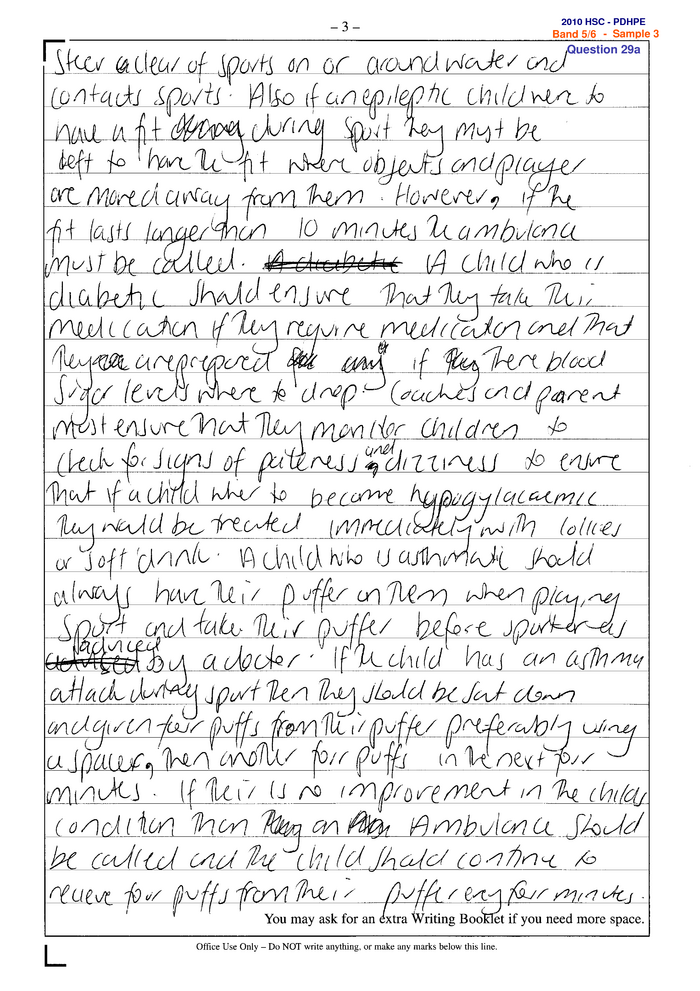 – 3 –
2010 HSC - PDHPE
Band 5/6 - Sample 3
Question 29a
Steer clear of sports on or around water and
contacts sports. Also if an epileptic child were to
have a fit during sport they must be
left to have the fit where objects and player
are moved away from them. However, if the
fit lasts longer than 10 minutes the ambulance
must be called. A diabetic A child who is
diabetic should ensure that they take their
medication if they require medication and that
they are prepared if there blood
sugar levels where to drop. Coaches and parent
must ensure that they monitor children to
check for signs of paleness and dizziness to ensure
that if a child wher to become hypogylacaemic
they would be treated immediately with lollies
or soft drink. A child who is asthmatic should
always have their puffer on them when playing
sport and take their puffer before sport or as
adviced by a docter. If the child has an asthma
attack during sport then they should be sat down
and given four puffs from their puffer preferably using
a spacer, then another four puffs in the next four
minutes. If their is no improvement in the childs
condition than an Ambulance should
be called and the child should continue to
recieve four puffs from their puffer evry four minutes.
You may ask for an extra Writing Booklet if you need more space.
Office Use Only – Do NOT write anything, or make any marks below this line.